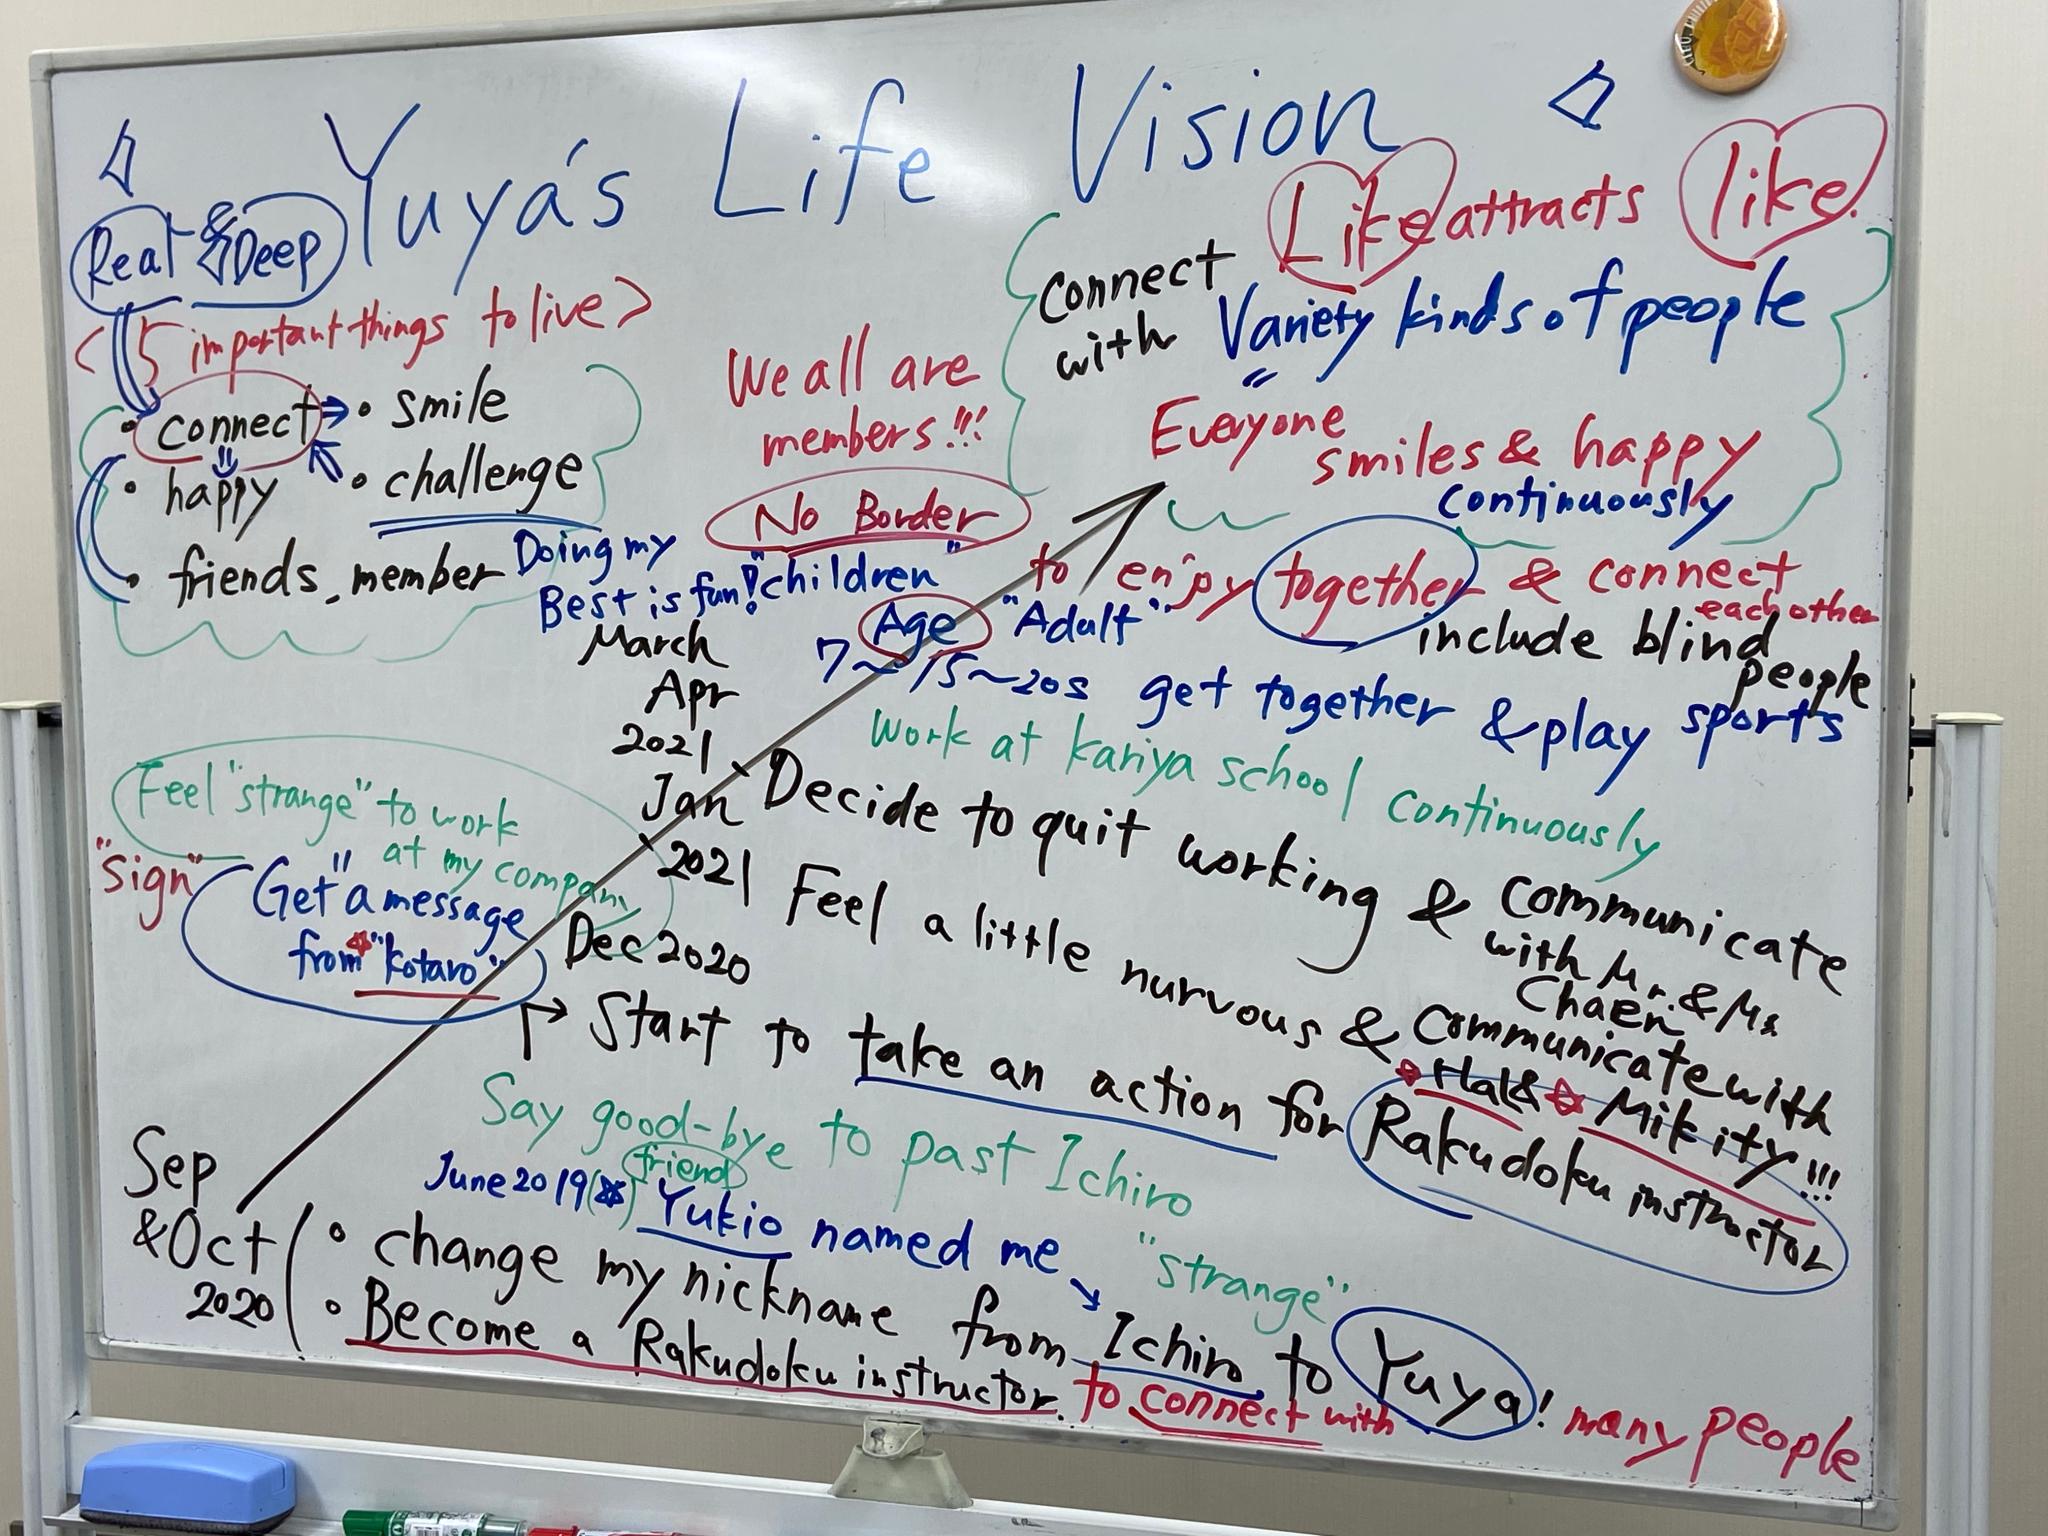 Yuya's Life Vision
Real & Deep
<5 important things to live>
• connect
• smile
• happy
• challenge
• friends, member
Doing my
Best is fun!
We all are
members!!!
No Border
"children"
Age
"Adult"
7~15~20s
Like attracts like.
Connect
with Variety kinds of people
"
Everyone
smiles & happy
continuously
to enjoy together & connect
each other
include blind
people
get together & play sports
work at kariya school continuously
March
Apr
2021
Decide to quit working & communicate
with Mr. & Ms
Chaen
Jan
2021
Feel a little nurvous & communicate with
Hal & Mikity!!!
Feel "strange" to work
at my company
"Sign"
"
Get a message
from "kotaro"
Dec 2020
Start to take an action for Rakudoku instructor
Say good-bye to past Ichiro
friend
June 2019 Yukio named me
"strange"
Sep
& Oct
2020
• change my nickname from Ichiro to Yuya!
• Become a Rakudoku instructor. to connect with many people